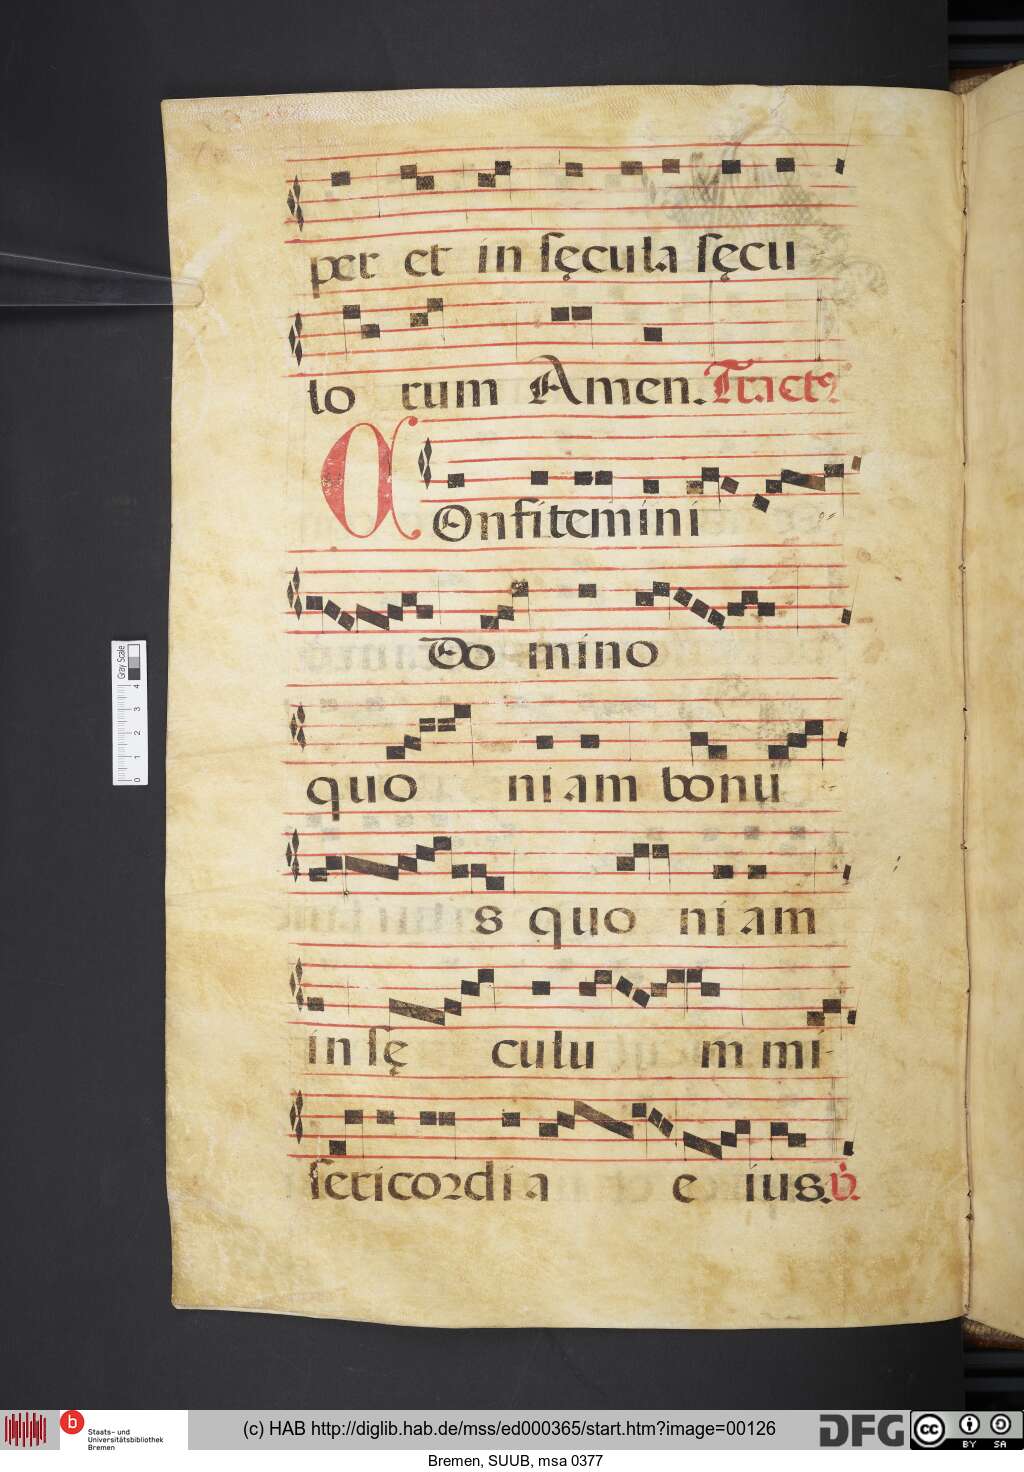 per et in ſęcula ſęcu
lo rum Amen. Tractꝰ
COnfitemini
Do mino
quo niam bonu
s quo niam
in ſę culu m mi-
ſericordia e ius. V̇.
Gray Scale
4
3
2
1
0
b
Staats- und
Universitätsbibliothek
Bremen
(c) HAB http://diglib.hab.de/mss/ed000365/start.htm?image=00126
DFG
cc
BY SA
Bremen, SUUB, msa 0377